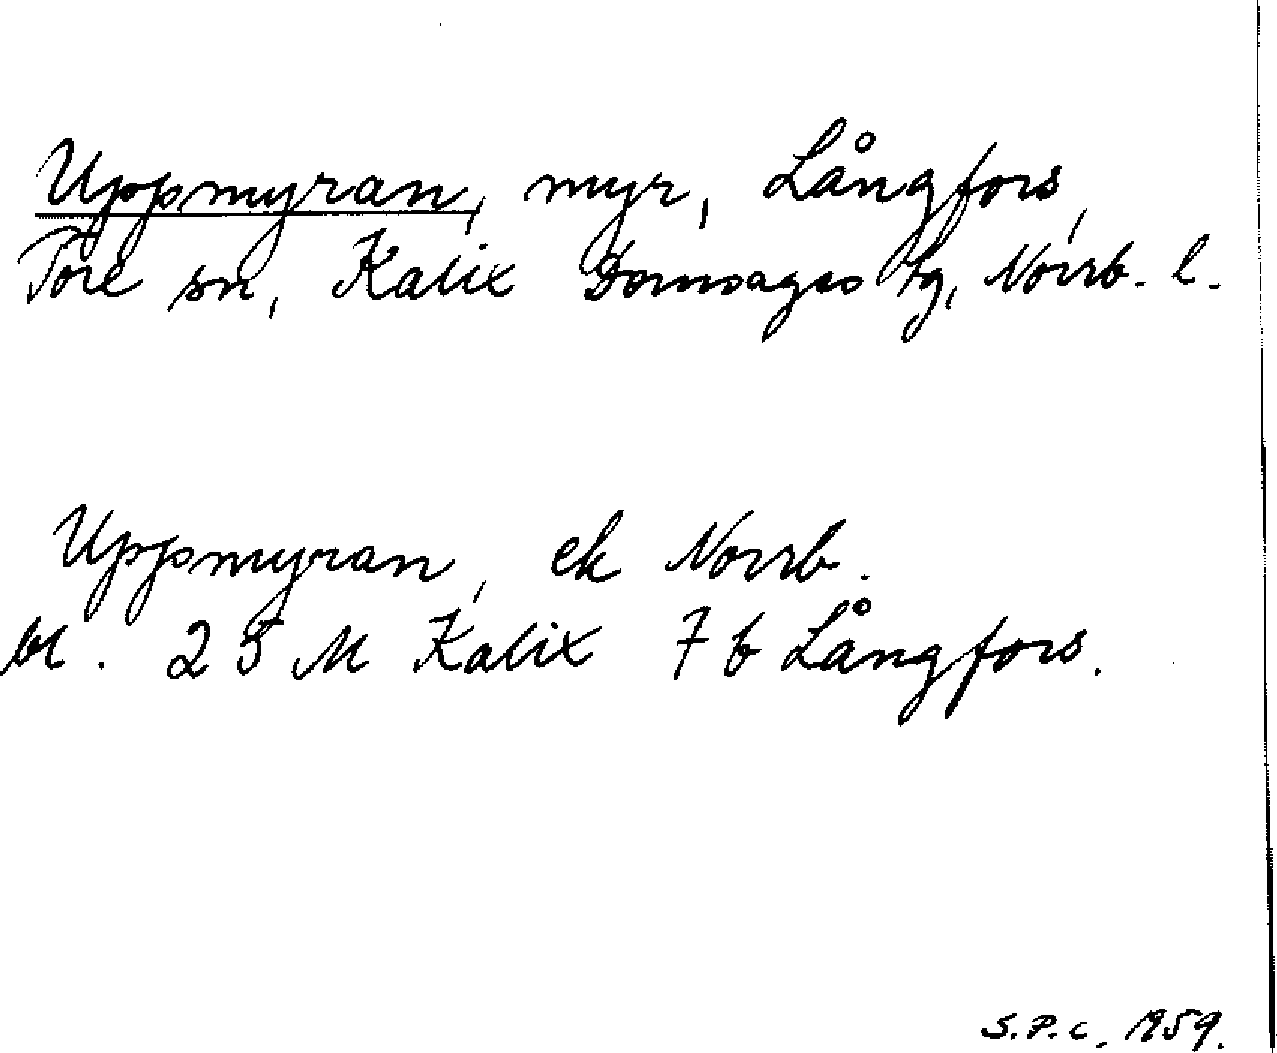 Uppmyran, myr, Långfors,
Töre sn, Kalix Domsagas tg, Norrb. l.
Uppmyran, ek Norrb.
bl. 25 M Kalix 7 b Långfors.
S.P.C. 1959.